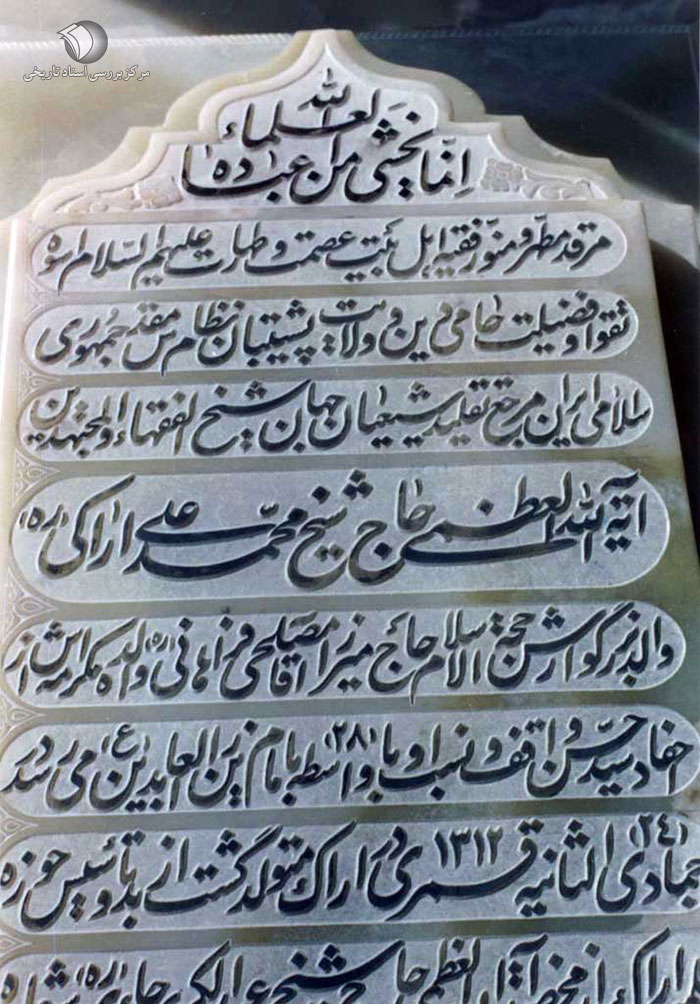 مرکز بررسی اسناد تاریخی
إنما یخشی الله من عباده العلماء
مرقد مطهر و منور فقیه اهل بیت عصمت و طهارت علیهم السلام اسوه
تقوا و فضیلت حامی دین و ولایت پشتیبان نظام مقدس جمهوری
اسلامی ایران مرجع تقلید شیعیان جهان شیخ الفقهاء و المجتهدین
آیة الله العظمی حاج شیخ محمد علی اراکی (ره)
والد بزرگوارش حجة الاسلام حاج میرزا آقا مصلحی فراهانی (ره) والده مکرمه اش از
احفاد سید حسن واقف و نسب او با (۲۸) واسطه بامام زین العابدین (ع) می رسد در
(۲۴) جمادی الثانیه ۱۳۱۲ قمری در اراک متولد گشت از بدو تأسیس حوزه
اراک از محضر آیة الله العظمی حاج شیخ عبدالکریم حائری (ره)